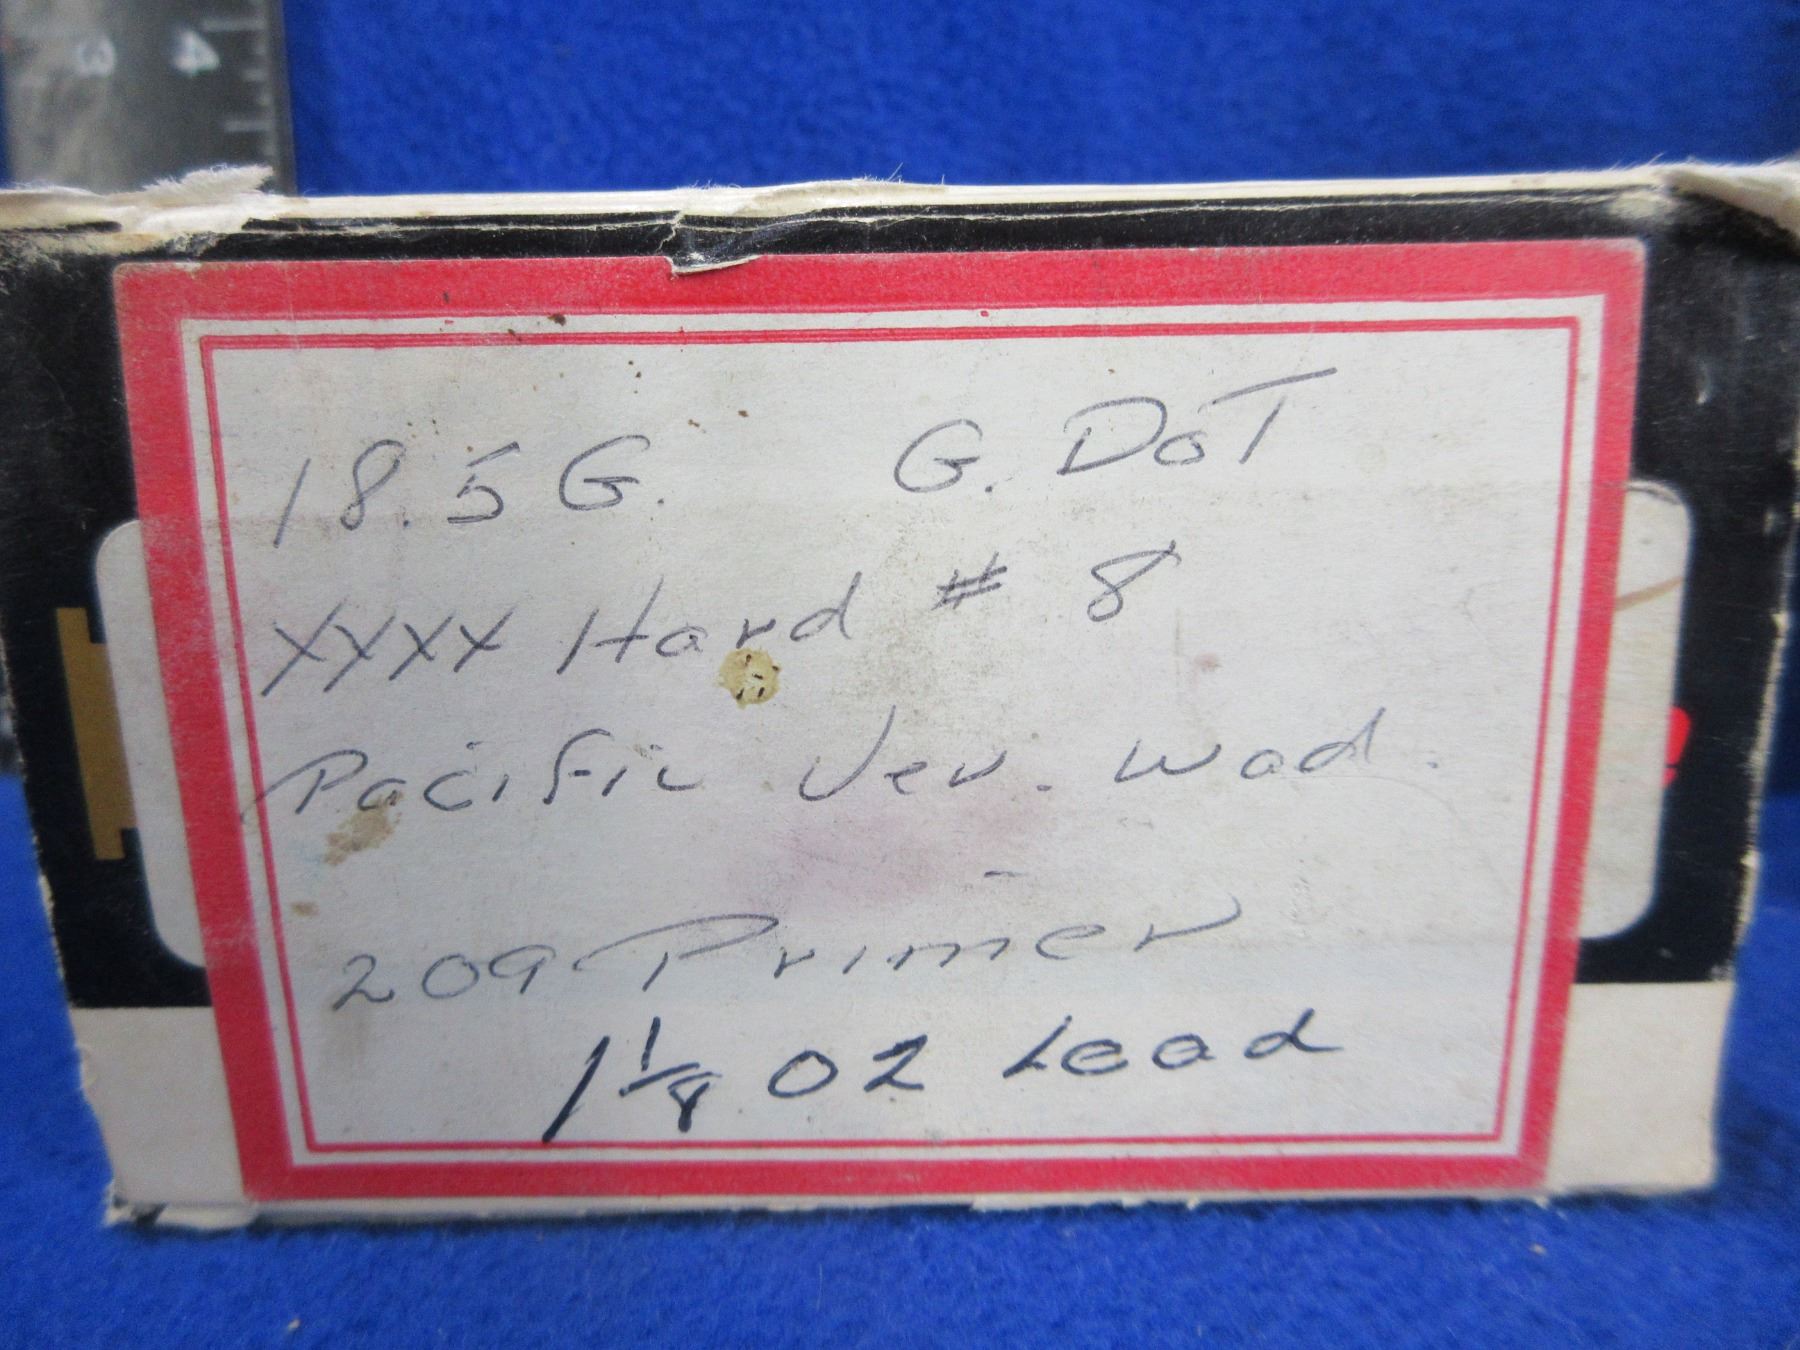 3 4
18.5 G. G. DOT
XXXX Hard # 8
Pacific Ver. Wad.
209 Primer
1 1/8 OZ Lead